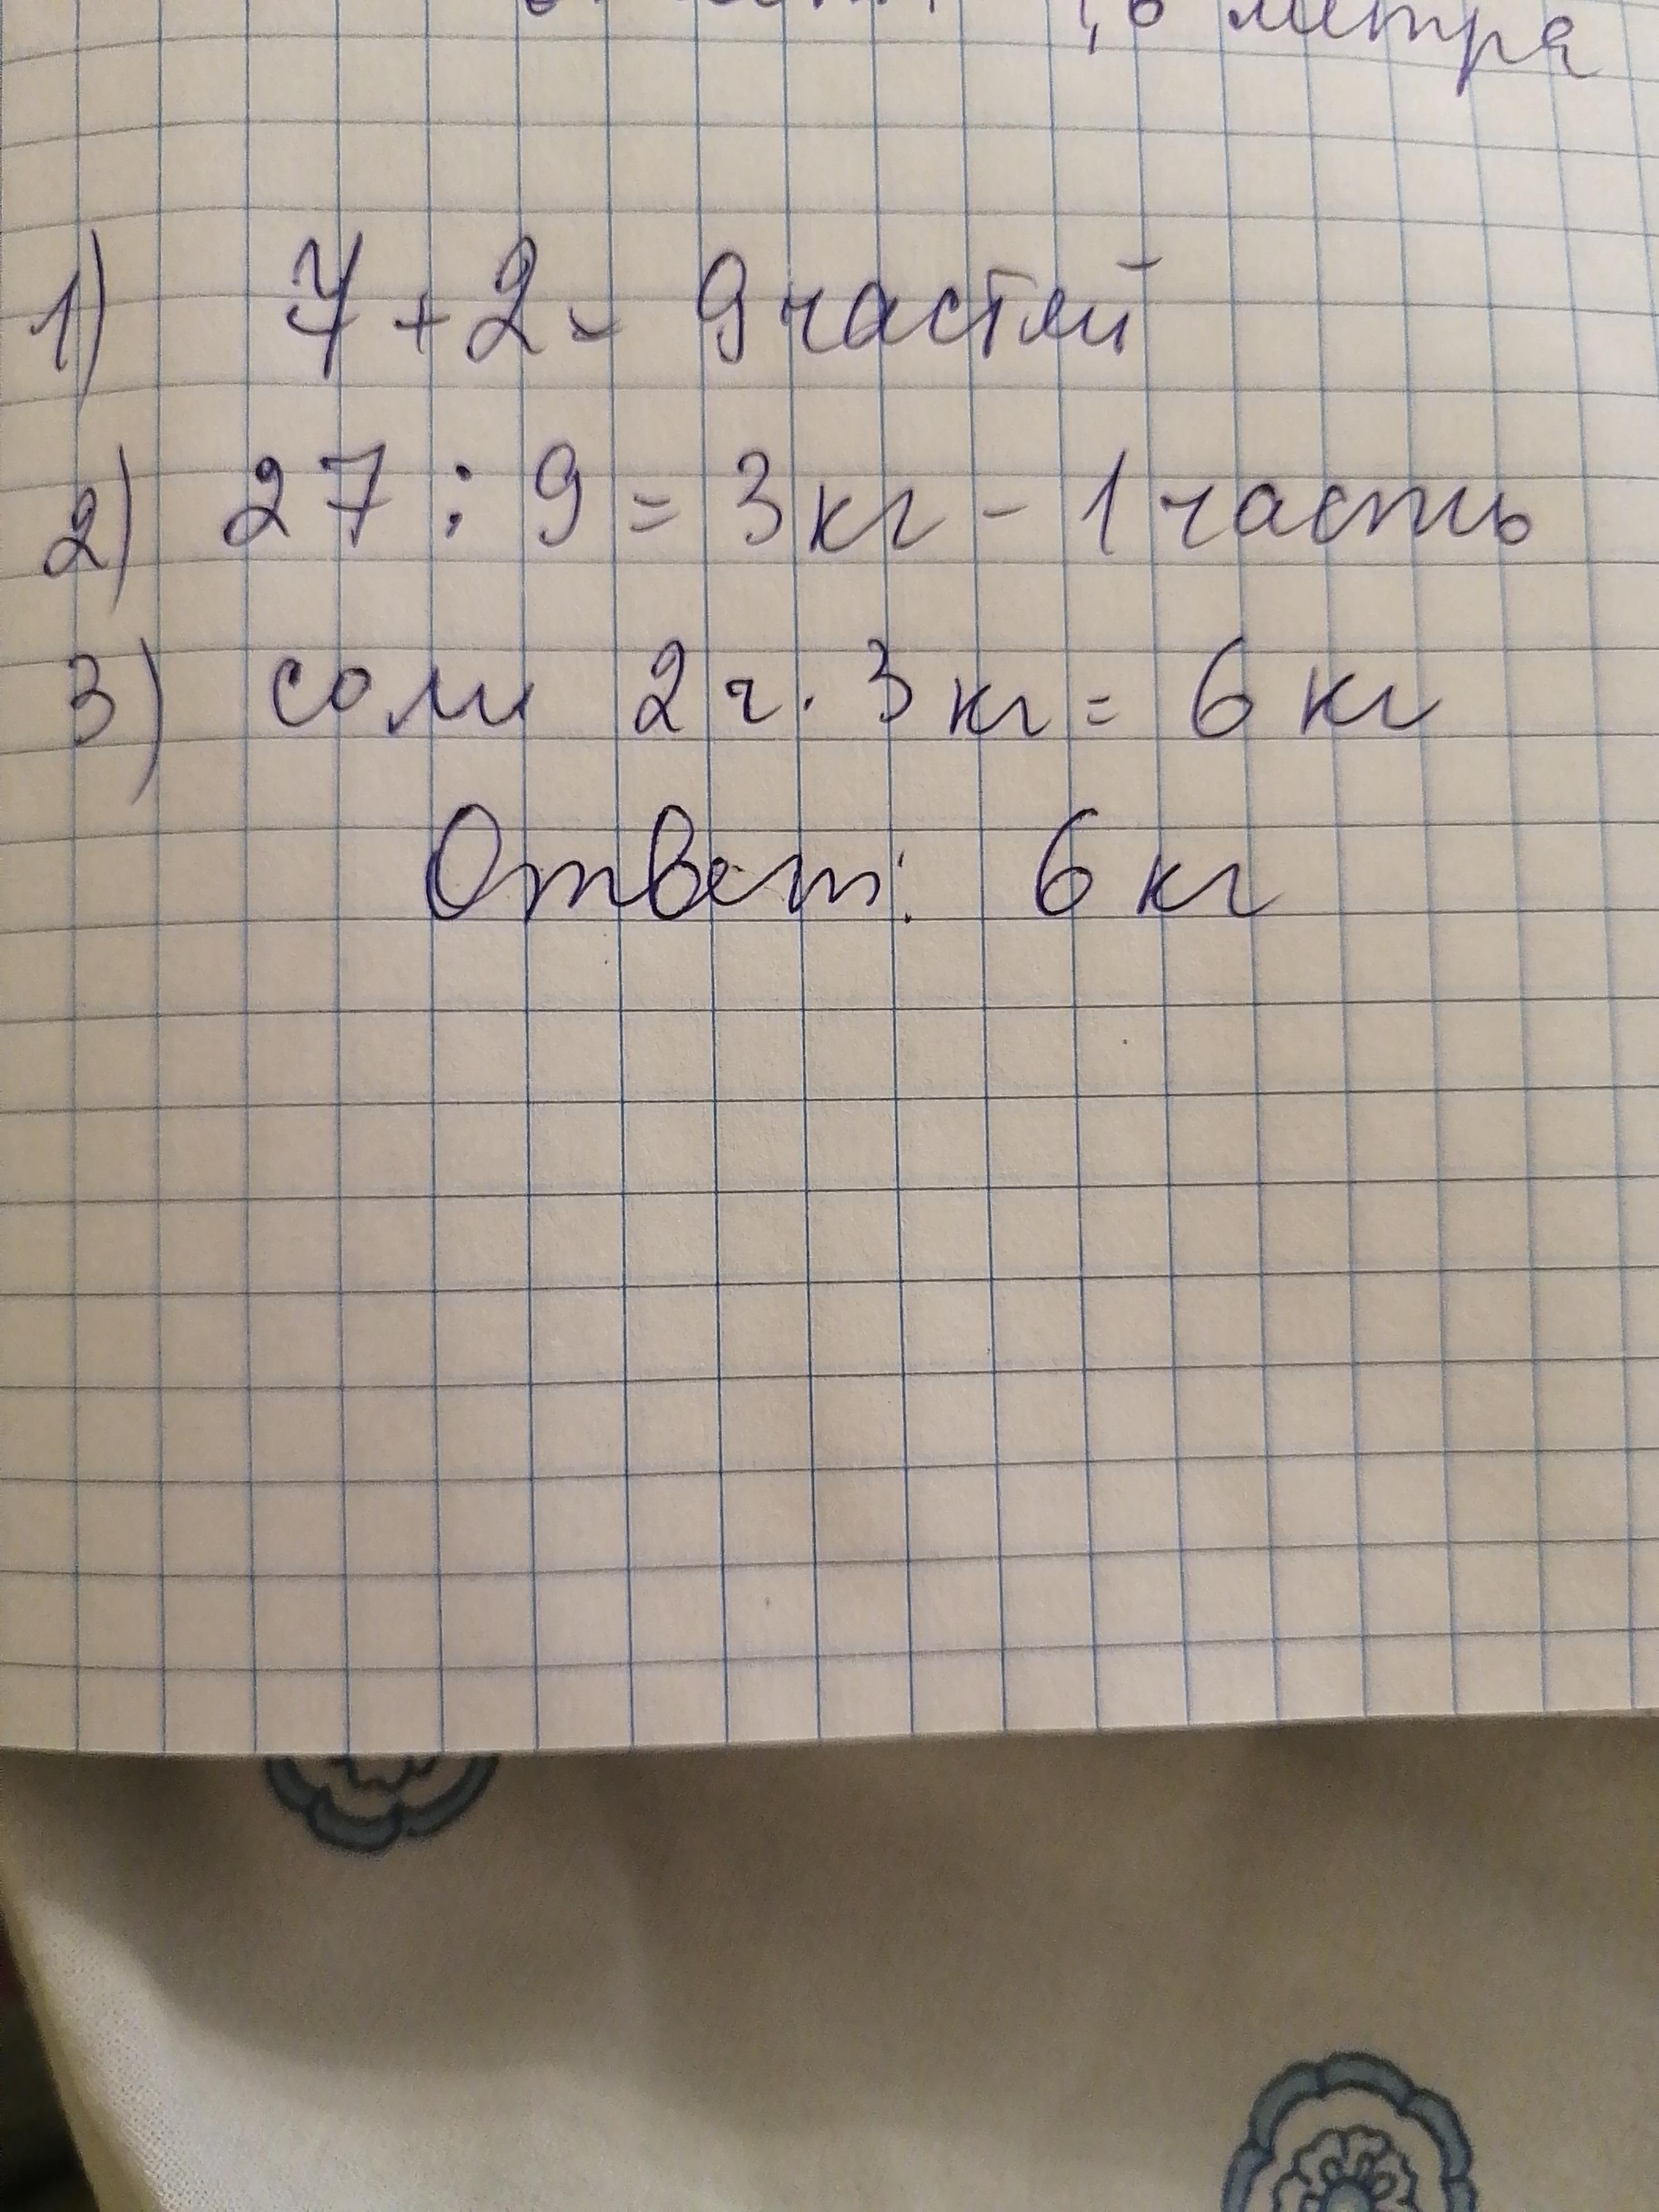 метра
1) 7 + 2 = 9 частей
2) 27 : 9 = 3 кг - 1 часть
3) соли 2 ч. 3 кг = 6 кг
Ответ: 6 кг